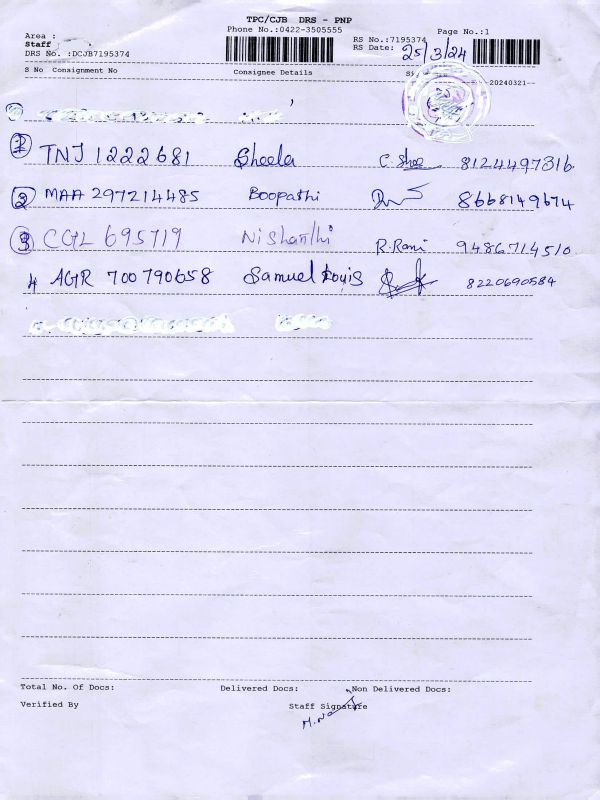 TPC/CJB DRS - PNP
Phone No.:0422-3505555
Page No.:1
Area :
RS No.:7195374
Staff
RS Date: 25/3/24
DRS No. :DCJB7195374
S No Consignment No Consignee Details
20240321
1 TNJ 1222681 Sheela C. Shee 8124497316
2 MAA 297214485 Boopathi 8668149674
3 CGL 695719 Nishanthi R. Rani 9486714510
4 AGR 700790658 Samuel Louis 8220690584
Total No. Of Docs: Delivered Docs: Non Delivered Docs:
Verified By Staff Signature